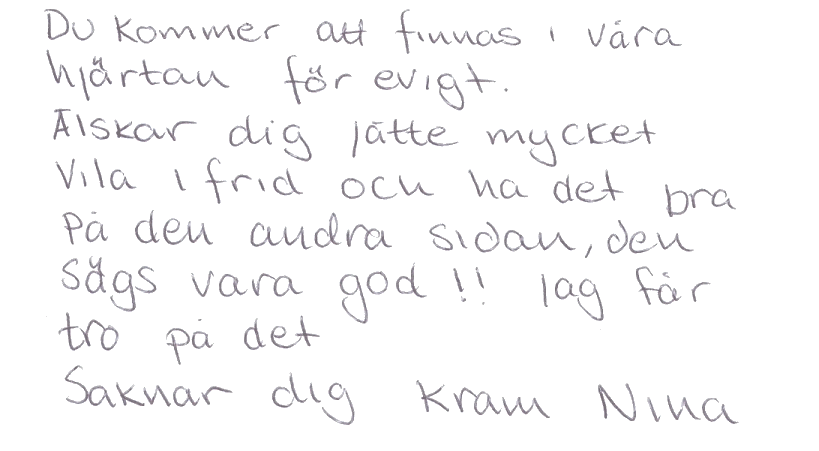 Du kommer att finnas i våra
hjärtan för evigt.
Älskar dig jätte mycket
Vila i frid och ha det bra
på den andra sidan, den
sägs vara god!! jag får
tro på det
Saknar dig kram Nina